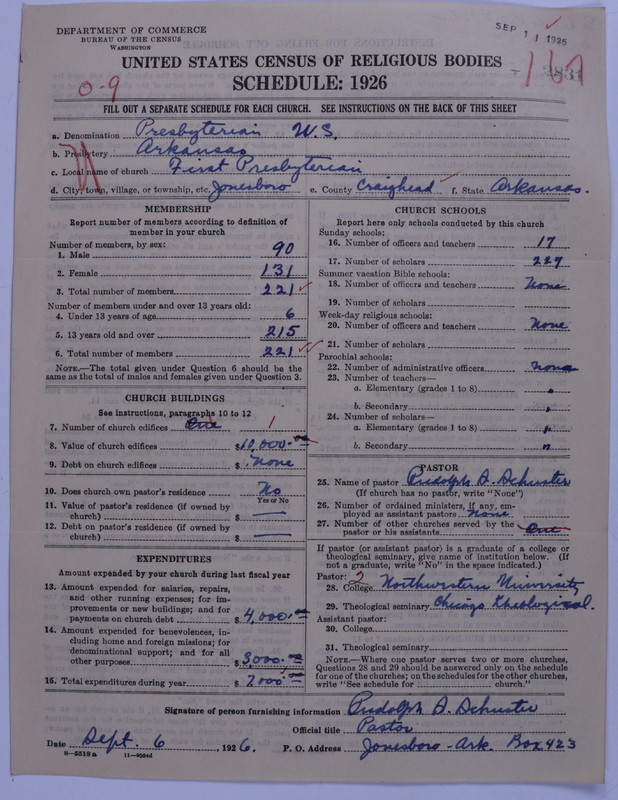 DEPARTMENT OF COMMERCE
BUREAU OF THE CENSUS
WASHINGTON
SEP 11 1926
UNITED STATES CENSUS OF RELIGIOUS BODIES
SCHEDULE: 1926
0-9
167
FILL OUT A SEPARATE SCHEDULE FOR EACH CHURCH. SEE INSTRUCTIONS ON THE BACK OF THIS SHEET
a. Denomination Presbyterian U.S.
b. Presbytery Arkansas
c. Local name of church First Presbyterian
d. City, town, village, or township, etc. Jonesboro e. County Craighead f. State Arkansas.
MEMBERSHIP
Report number of members according to definition of
member in your church
Number of members, by sex:
1. Male 90
2. Female 131
3. Total number of members 221
Number of members under and over 13 years old:
4. Under 13 years of age 6
5. 13 years old and over 215
6. Total number of members 221
NOTE.—The total given under Question 6 should be
same as the total of males and females given under Question 3.
CHURCH BUILDINGS
See instructions, paragraphs 10 to 12
7. Number of church edifices One 1
8. Value of church edifices $10,000.00
9. Debt on church edifices $ None
10. Does church own pastor's residence No
Yes or No
11. Value of pastor's residence (if owned by
church) $ —
12. Debt on pastor's residence (if owned by
church) $ —
EXPENDITURES
Amount expended by your church during last fiscal year
13. Amount expended for salaries, repairs,
and other running expenses; for im-
provements or new buildings; and for
payments on church debt $ 4,000.00
14. Amount expended for benevolences, in-
cluding home and foreign missions; for
denominational support; and for all
other purposes $ 3000.00
15. Total expenditures during year $ 7000.00
CHURCH SCHOOLS
Report here only schools conducted by this church
Sunday schools:
16. Number of officers and teachers 17
17. Number of scholars 229
Summer vacation Bible schools:
18. Number of officers and teachers None
19. Number of scholars
Week-day religious schools:
20. Number of officers and teachers None
21. Number of scholars
Parochial schools:
22. Number of administrative officers None
23. Number of teachers—
a. Elementary (grades 1 to 8) "
b. Secondary "
24. Number of scholars—
a. Elementary (grades 1 to 8) "
b. Secondary "
PASTOR
25. Name of pastor Rudolph A. Schuster
(If church has no pastor, write "None")
26. Number of ordained ministers, if any, em-
ployed as assistant pastors None
27. Number of other churches served by the
pastor or his assistants One
If pastor (or assistant pastor) is a graduate of a college or
theological seminary, give name of institution below. (If
not a graduate, write "No" in the space indicated.)
Pastor: 2
28. College Northwestern University
29. Theological seminary Chicago Theological.
Assistant pastor:
30. College
31. Theological seminary
NOTE.—Where one pastor serves two or more churches,
Questions 28 and 29 should be answered only on the schedule
for one of the churches; on the schedules for the other churches,
write "See schedule for church."
Signature of person furnishing information Rudolph A. Schuster
Official title Pastor
Date Sept. 6, 1926. P. O. Address Jonesboro - Ark. Box 423
8—5518a 11—9554d